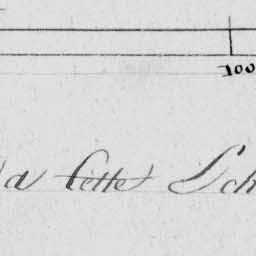 100
a cette Sch